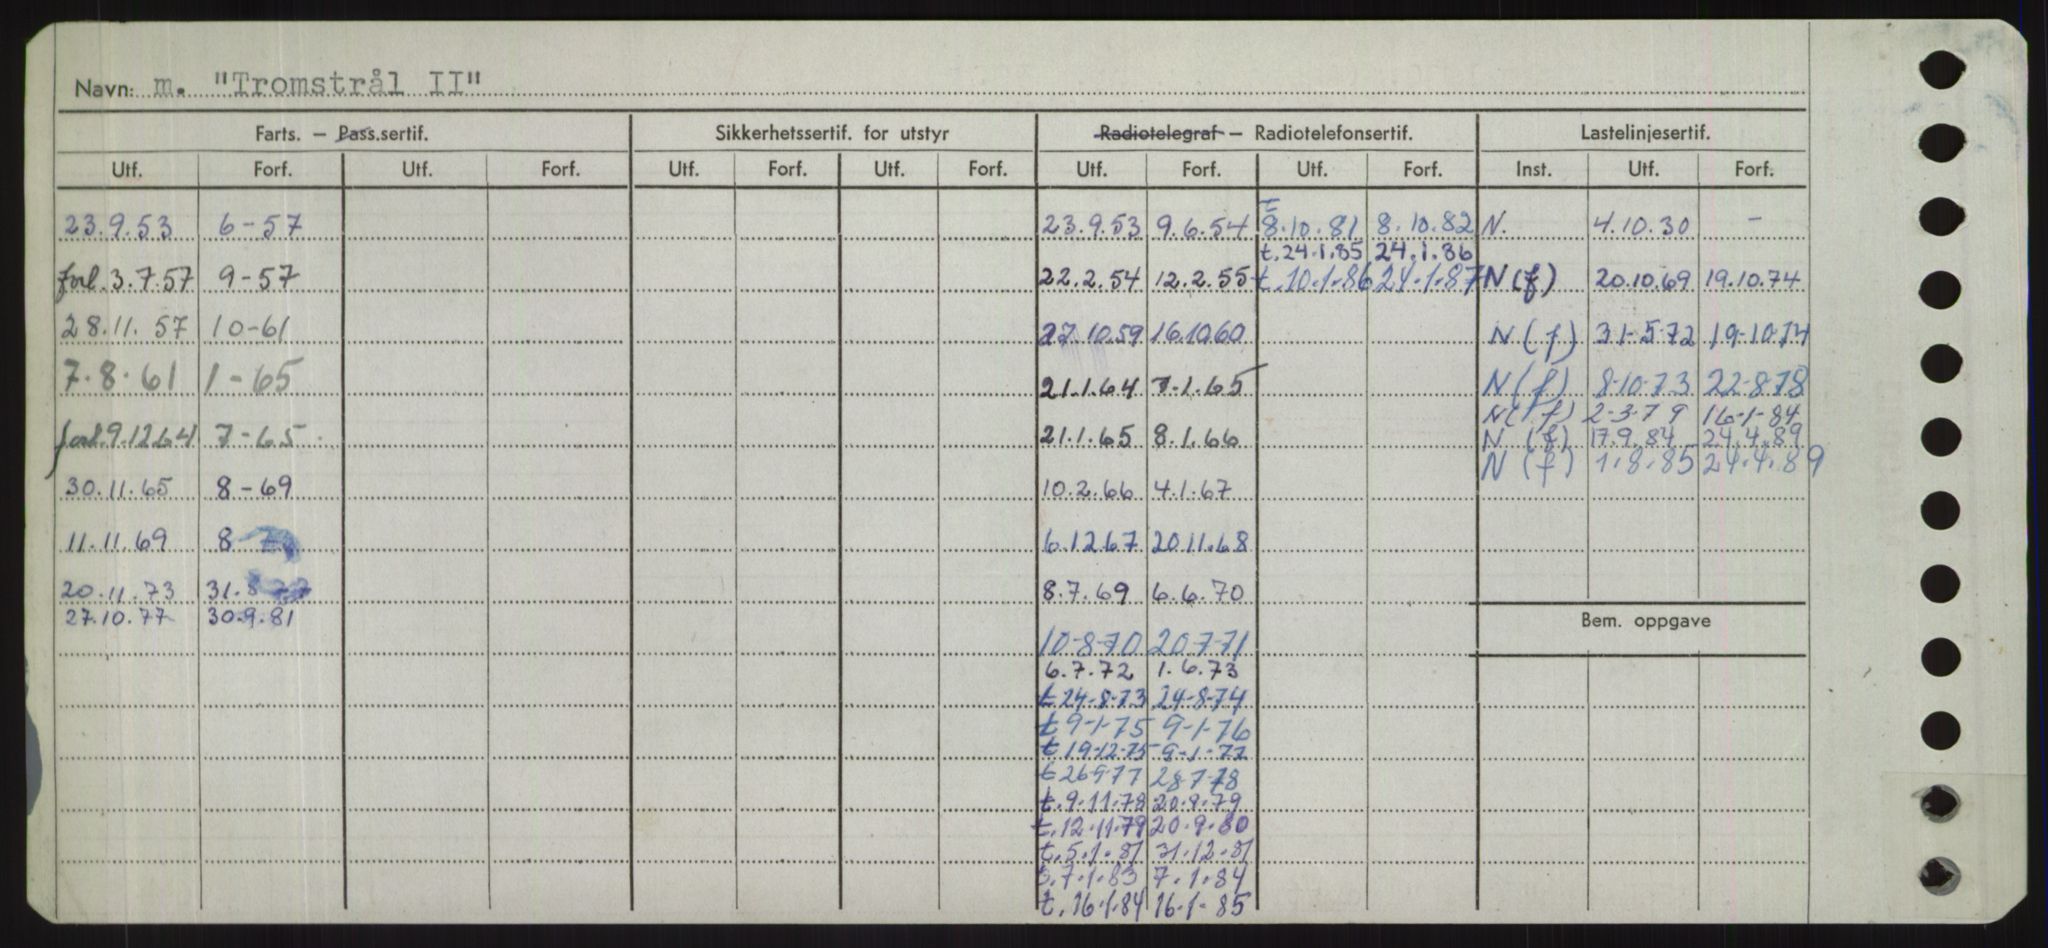 Navn: m. "Tromstrål II"
Farts. – Pass.sertif. Sikkerhetssertif. for utstyr Radiotelegraf – Radiotelefonsertif. Lastelinjesertif.
Utf. Forf. Utf. Forf. Utf. Forf. Utf. Forf. Utf. Forf. Utf. Forf. Inst. Utf. Forf.
23.9.53 6-57 23.9.53 9.6.54 t 8.10.81 8.10.82 N. 4.10.30 –
t.24.1.85 24.1.86
forl.3.7.57 9-57 22.2.54 12.2.55 t.10.1.86 24.1.87 N(f) 20.10.69 19.10.74
28.11.57 10-61 27.10.59 16.10.60 N(f) 31-5-72 19-10-74
7.8.61 1-65 21.1.64 7.1.65 N(f) 8-10-73 22-8-78
N(f) 2-3-79 16-1-84
forl.9.12.64 7-65 21.1.65 8.1.66 N (f) 17.9.84 24.4.89
N (f) 1.8.85 24.4.89
30.11.65 8-69 10.2.66 4.1.67
11.11.69 8- 6.12.67 20.11.68
20.11.73 31.8 8.7.69 6.6.70
27.10.77 30.9.81 Bem. oppgave
10-8-70 20-7-71
6.7.72 1.6.73
t.24-8-73 24-8-74
t 9-1-75 9-1-76
t.19-12-75 9-1-77
t 26-9-77 28-7-78
t.9.11.78 20.9.79
t.12.11.79 20.9.80
t.5.1.81 31.12.81
7.1.83 7.1.84
t.16.1.84 16.1.85